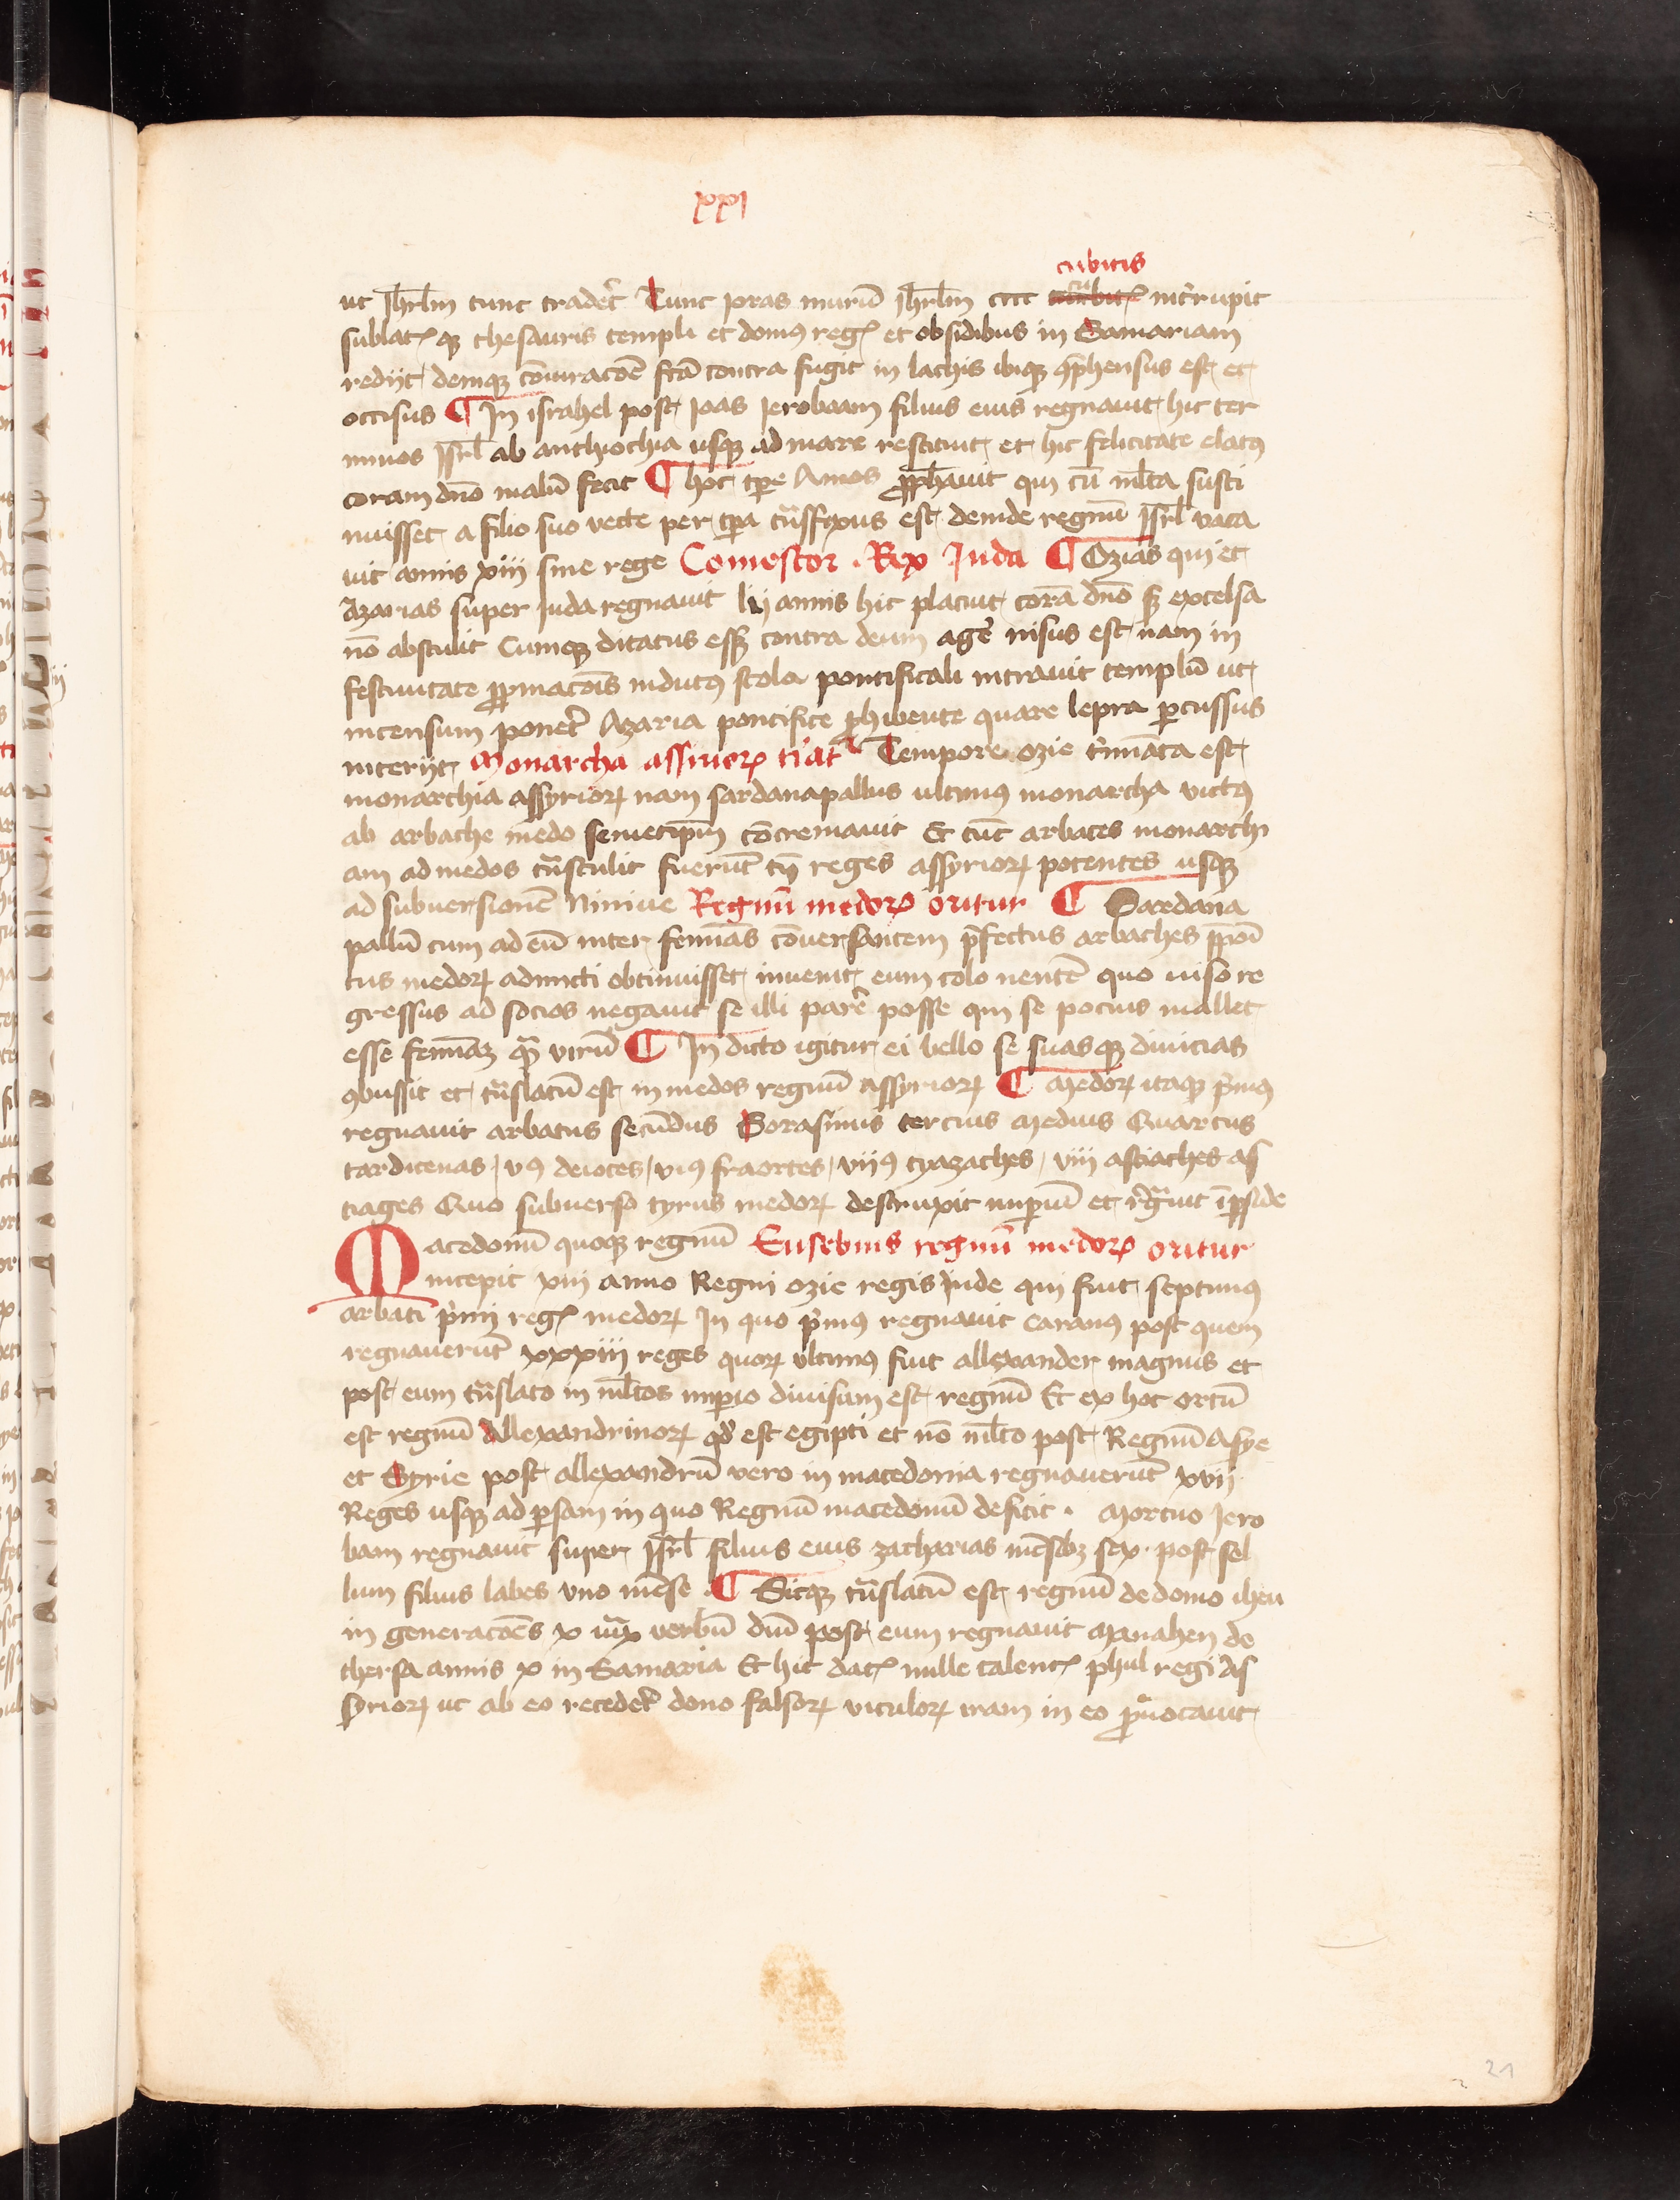 xxi
cubitis
ut Jhrlm tunc tradet᷑ Tunc Joras murū Jhrlm cccc int᷑rupit
sublatꝭ qꝫ thesauris templi et domꝰ regꝭ et obsidibus in Samariam
redijt demqꝫ cōiuracōē fc̄a contra fugit in lachis ibiqꝫ ꝯp̄hensus est et
occisus ¶ In israhel post Joas Jeroboam filius eius regnauit hic ter
minos Isrl̄ ab anthiochia usqꝫ ad mare restituit et hic felicitate elatꝰ
coram dn̄o malū fecit ¶ hoc tp̄e Amos ꝓph̄auit qui cū ml̄ta susti
nuisset a filio suo vecte per tp̄a tn̄sfixus est deinde regnū Isrl̄ vaca
uit annis xiii sine rege Comestor . Rex Juda ¶ Ozias qui et
Azarias super Juda regnauit lij annis hic placuit corā dn̄o sꝫ excelsa
nō abstulit Cumqꝫ ditatus essꝫ contra deum age᷑ nisus est nam in
festiuitate ꝓpiciacōis indutꝰ stola pontificali intrauit templū ut
incensum ponet᷑ Azaria pontifice ꝓhibente quare lepra ꝑcussus
interijt Monarcha assirioꝝ t᷑iat᷑ Tempore ozie t᷑minata est
monarchia assyrioꝝ nam sardanapallus ultimꝰ monarcha victꝰ
ab arbache medo semetip̄m concremauit Et tūc arbates monarchi
am ad medos tn̄stulit fuerūt tn̄ reges assyrioꝝ potentes usqꝫ
ad subuersionē Niniue Regnū medoꝝ oritur ¶ Sardana
pallū cum ad eū inter feminas cōuersantem p̄fectus arbaches
tus medoꝝ admitti obtinuisset inuenit eum colo nentē quo uiso re
gressus ad socios negauit se illi pare᷑ posse qui se pocius mallet
esse feminaꝫ qͣ virū ¶ In dicto igitur ei bello se suasqꝫ diuicias
ꝯbussit et tn̄slatū est in medos regnū assyrioꝝ ¶ Medoꝝ itaqꝫ p̄mꝰ
regnauit arbatus secūdus Sorasinus tercius Medius Quartus
tarditenas vꝰ deiotes viꝰ fraortes viiꝰ cyazaches viii astiaches as
tiages Quo subuerso cyrus medoꝝ destruxit imꝑiū et rͤgͣuit ī ꝑside
Macedonū quoqꝫ regnū Eusebius regnū medoꝝ oritur
incepit xiii anno Regni ozie regis Jude qui fuit septimꝰ
arbati p̄mi regꝭ medoꝝ In quo p̄mꝰ regnauit caranꝰ post quem
regnauerūt xxxiii reges quoꝝ ultimꝰ fuit allexander magnus et
post eum tn̄slato in ml̄tos imꝑio diuisum est regnū Et ex hoc ortū
est regnū Allexandrinoꝝ qd̄ est egipti et nō ml̄to post Regnū Asye
et Syrie post allexandrū vero in macedonia regnauerūt xvij
Reges usqꝫ ad ꝑsam in quo Regnū macedonū deficit . Mortuo Jero
bam regnauit super Isrl̄ filius eius zacharias mēsibꝫ sex post sel
lum filius labes uno mēse . ¶ Sicqꝫ tn̄slatū est regnū de domo iheu
in generacōēs x verbū dn̄i post eum regnauit Manahen de
thersa annis x in Samaria Et hic datꝭ mille talentꝭ phul regi As
syrioꝝ ut ab eo recedet᷑ dono falsoꝝ vitulorꝝ iram in eo ꝓuocauit
21